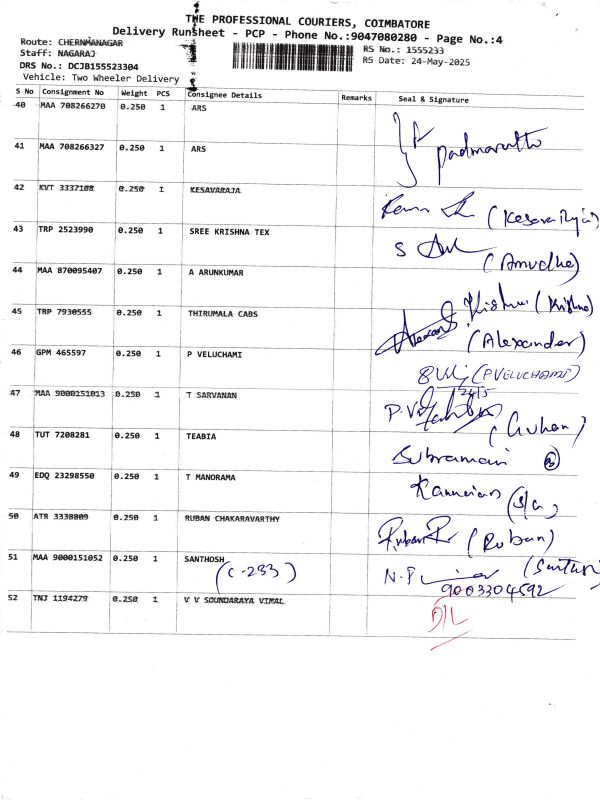 THE PROFESSIONAL COURIERS, COIMBATORE
Delivery Runsheet - PCP - Phone No.:9047080280 - Page No.:4
Route: CHERNMANAGAR
RS No.: 1555233
Staff: NAGARAJ
RS Date: 24-May-2025
DRS No.: DCJB155523304
Vehicle: Two Wheeler Delivery
S No Consignment No Weight PCS Consignee Details Remarks Seal & Signature
40 MAA 708266270 0.250 1 ARS
41 MAA 708266327 0.250 1 ARS
42 KVT 3337108 0.250 1 KESAVARAJA
43 TRP 2523990 0.250 1 SREE KRISHNA TEX
(Anudha)
44 MAA 870095407 0.250 1 A ARUNKUMAR
45 TRP 7930555 0.250 1 THIRUMALA CABS
(Alexander)
46 GPM 465597 0.250 1 P VELUCHAMI
(P VELUCHAMI)
47 MAA 9000151013 0.250 1 T SARVANAN
24/5
(Guhan)
48 TUT 7208281 0.250 1 TEABIA
Subramani
49 EDQ 23298550 0.250 1 T MANORAMA
50 ATR 3338809 0.250 1 RUBAN CHAKARAVARTHY
(Ruban)
51 MAA 9000151052 0.250 1 SANTHOSH
(C-233)
9003304592
52 TNJ 1194279 0.250 1 V V SOUNDARAYA VIMAL
D/L